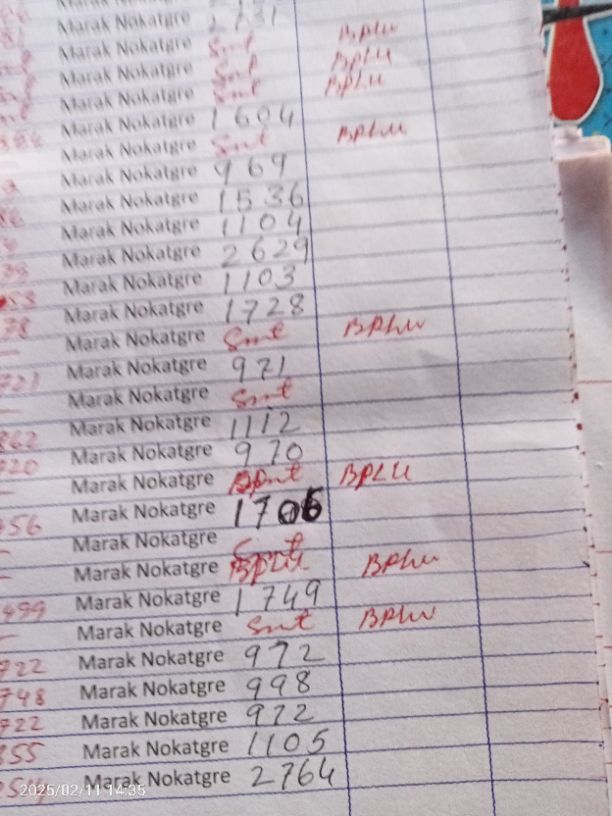 Marak Nokatgre 2731
Marak Nokatgre Smt BPLU
Marak Nokatgre Smt BPLU
Marak Nokatgre Smt BPLU
Marak Nokatgre 1604
Marak Nokatgre Smt BPLU
Marak Nokatgre 969
Marak Nokatgre 1536
Marak Nokatgre 1104
Marak Nokatgre 2629
Marak Nokatgre 1103
Marak Nokatgre 1728
78 Marak Nokatgre Smt BPLU
Marak Nokatgre 971
721 Marak Nokatgre Smt
Marak Nokatgre 1112
862 Marak Nokatgre 970
720 Marak Nokatgre BPLU
Marak Nokatgre 1706
956 Marak Nokatgre Smt
Marak Nokatgre BPLU BPLU
Marak Nokatgre 1749
1499 Marak Nokatgre Smt BPLU
Marak Nokatgre 972
722 Marak Nokatgre 998
748 Marak Nokatgre 972
722 Marak Nokatgre 1105
855 Marak Nokatgre 2764
2025/02/11 14:35